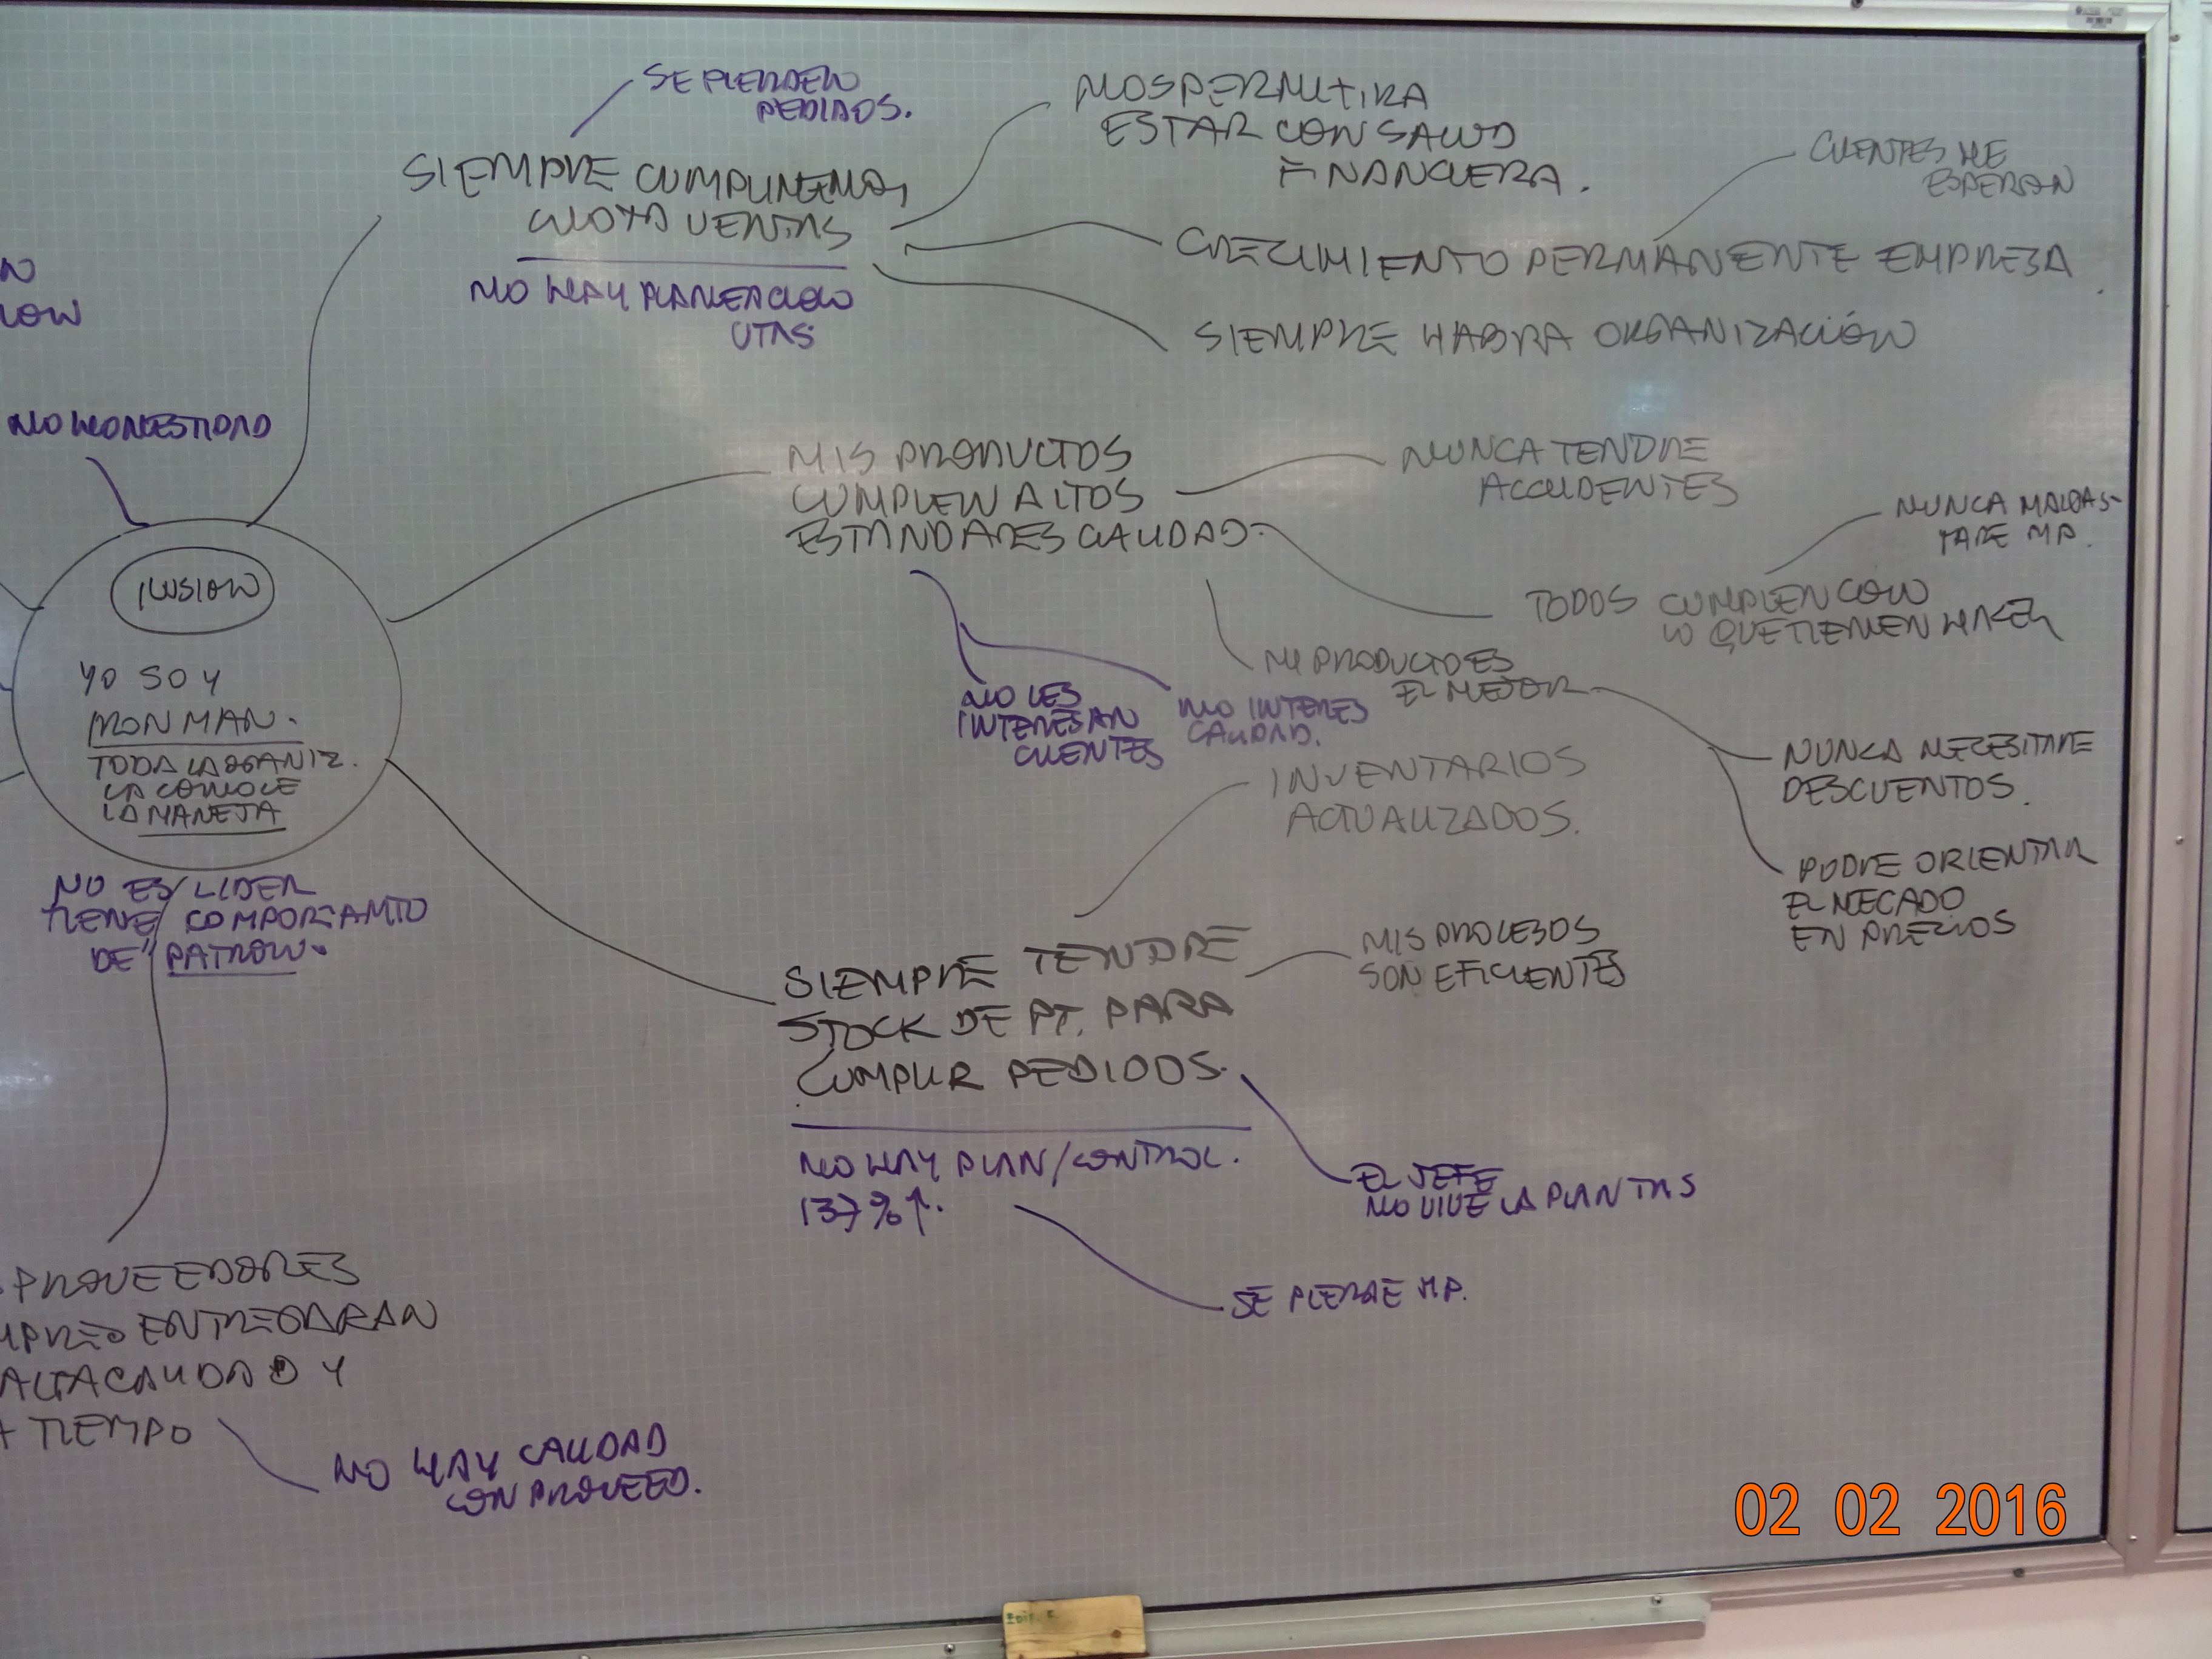 SE PIERDEN
PEDIDOS.
SIEMPRE CUMPLIREMOS
CUOTA VENTAS
NO HAY PLANEACION
VTAS.
NOS PERMITIRA
ESTAR CON SALUD
FINANCIERA.
CLIENTES ME
ESPERAN
CRECIMIENTO PERMANENTE EMPRESA
SIEMPRE HABRA ORGANIZACIÓN
NO HONESTIDAD
ILUSION
YO SOY
IRON MAN.
TODA LA OGANIZ.
LA CONOCE
LA MANEJA
NO ES LIDER
TIENE COMPORTAMTO
DE PATRON.
MIS PRODUCTOS
CUMPLEN ALTOS
ESTANDARES CALIDAD.
NUNCA TENDRE
ACCIDENTES
NUNCA MALGAS-
TARE MP.
TODOS CUMPLEN CON
LO QUE TIENEN HACER
MI PRODUCTO ES
EL MEJOR
NO LES
INTERESAN
CLIENTES
NO INTERES
CALIDAD.
NUNCA NECESITARE
DESCUENTOS.
PODRE ORIENTAR
EL MECADO
EN PRECIOS
INVENTARIOS
ACTUALIZADOS.
SIEMPRE TENDRE
STOCK DE PT. PARA
CUMPLIR PEDIDOS.
MIS PROCESOS
SON EFICIENTES
NO HAY PLAN/CONTROL.
137%↑.
EL JEFE
NO VIVE LA PLANTAS
SE PIERDE MP.
PROVEEDORES
ENTREGARAN
ALTA CALIDAD Y
TIEMPO
NO HAY CALIDAD
CON PROVEED.
02 02 2016